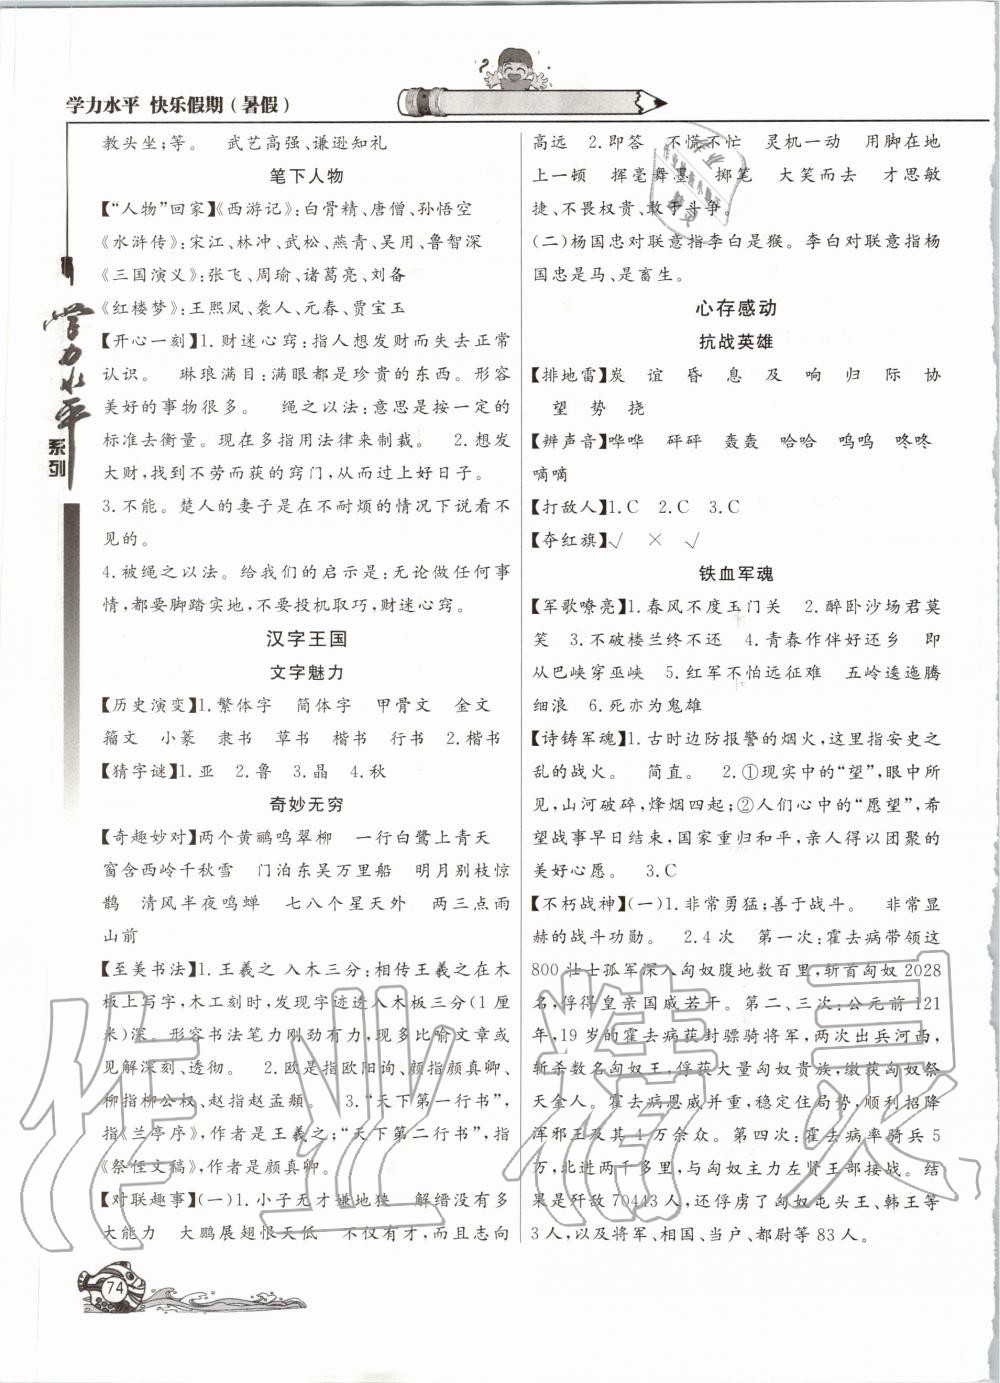 学力水平 快乐假期(暑假)
教头坐;等。 武艺高强、谦逊知礼
笔下人物
【“人物”回家】《西游记》:白骨精、唐僧、孙悟空
《水浒传》:宋江、林冲、武松、燕青、吴用、鲁智深
《三国演义》:张飞、周瑜、诸葛亮、刘备
《红楼梦》:王熙凤、袭人、元春、贾宝玉
【开心一刻】1.财迷心窍:指人想发财而失去正常
认识。 琳琅满目:满眼都是珍贵的东西。形容
美好的事物很多。 绳之以法:意思是按一定的
标准去衡量。现在多指用法律来制裁。 2.想发
大财,找到不劳而获的窍门,从此过上好日子。
3.不能。楚人的妻子是在不耐烦的情况下说看不
见的。
4.被绳之以法。给我们的启示是:无论做任何事
情,都要脚踏实地,不要投机取巧,财迷心窍。
汉字王国
文字魅力
【历史演变】1.繁体字 简体字 甲骨文 金文
籀文 小篆 隶书 草书 楷书 行书 2.楷书
【猜字谜】1.亚 2.鲁 3.晶 4.秋
奇妙无穷
【奇趣妙对】两个黄鹂鸣翠柳 一行白鹭上青天
窗含西岭千秋雪 门泊东吴万里船 明月别枝惊
鹊 清风半夜鸣蝉 七八个星天外 两三点雨
山前
【至美书法】1.王羲之 入木三分:相传王羲之在木
板上写字,木工刻时,发现字迹透入木板三分(1厘
米)深。形容书法笔力刚劲有力,现多比喻文章或
见解深刻、透彻。 2.欧是指欧阳询、颜指颜真卿、
柳指柳公权、赵指赵孟頫。 3.“天下第一行书”,
指《兰亭序》,作者是王羲之;“天下第二行书”,指
《祭侄文稿》,作者是颜真卿。
【对联趣事】(一)1.小子无才嫌地狭 解缙没有多
大能力 大鹏展翅恨天低 不仅有才,而且志向
学力水平
系列
74
高远 2.即答 不慌不忙 灵机一动 用脚在地
上一顿 挥毫舞墨 掷笔 大笑而去 才思敏
捷、不畏权贵、敢于斗争。
(二)杨国忠对联意指李白是猴。李白对联意指杨
国忠是马、是畜生。
心存感动
抗战英雄
【排地雷】炭 谊 昏 息 及 响 归 际 协
望 势 挠
【辨声音】哗哗 砰砰 轰轰 哈哈 呜呜 咚咚
嘀嘀
【打敌人】1.C 2.C 3.C
【夺红旗】√ × √
铁血军魂
【军歌嘹亮】1.春风不度玉门关 2.醉卧沙场君莫
笑 3.不破楼兰终不还 4.青春作伴好还乡 即
从巴峡穿巫峡 5.红军不怕远征难 五岭逶迤腾
细浪 6.死亦为鬼雄
【诗铸军魂】1.古时边防报警的烟火,这里指安史之
乱的战火。 简直。 2.①现实中的“望”,眼中所
见,山河破碎,烽烟四起;②人们心中的“愿望”,希
望战事早日结束,国家重归和平,亲人得以团聚的
美好心愿。 3.C
【不朽战神】(一)1.非常勇猛;善于战斗。 非常显
赫的战斗功勋。 2.4次 第一次:霍去病带领这
800壮士孤军深入匈奴腹地数百里,斩首匈奴2028
名,俘得皇亲国戚若干。第二、三次:公元前121
年,19岁的霍去病获封骠骑将军,两次出兵河西,
斩杀数名匈奴王,俘获大量匈奴贵族,缴获匈奴祭
天金人。霍去病恩威并重,稳定住局势,顺利招降
浑邪王及其4万余众。第四次:霍去病率骑兵5
万,北进两千多里,与匈奴主力左贤王部接战。结
果是歼敌70443人,还俘虏了匈奴屯头王、韩王等
3人,以及将军、相国、当户、都尉等83人。
作业精灵